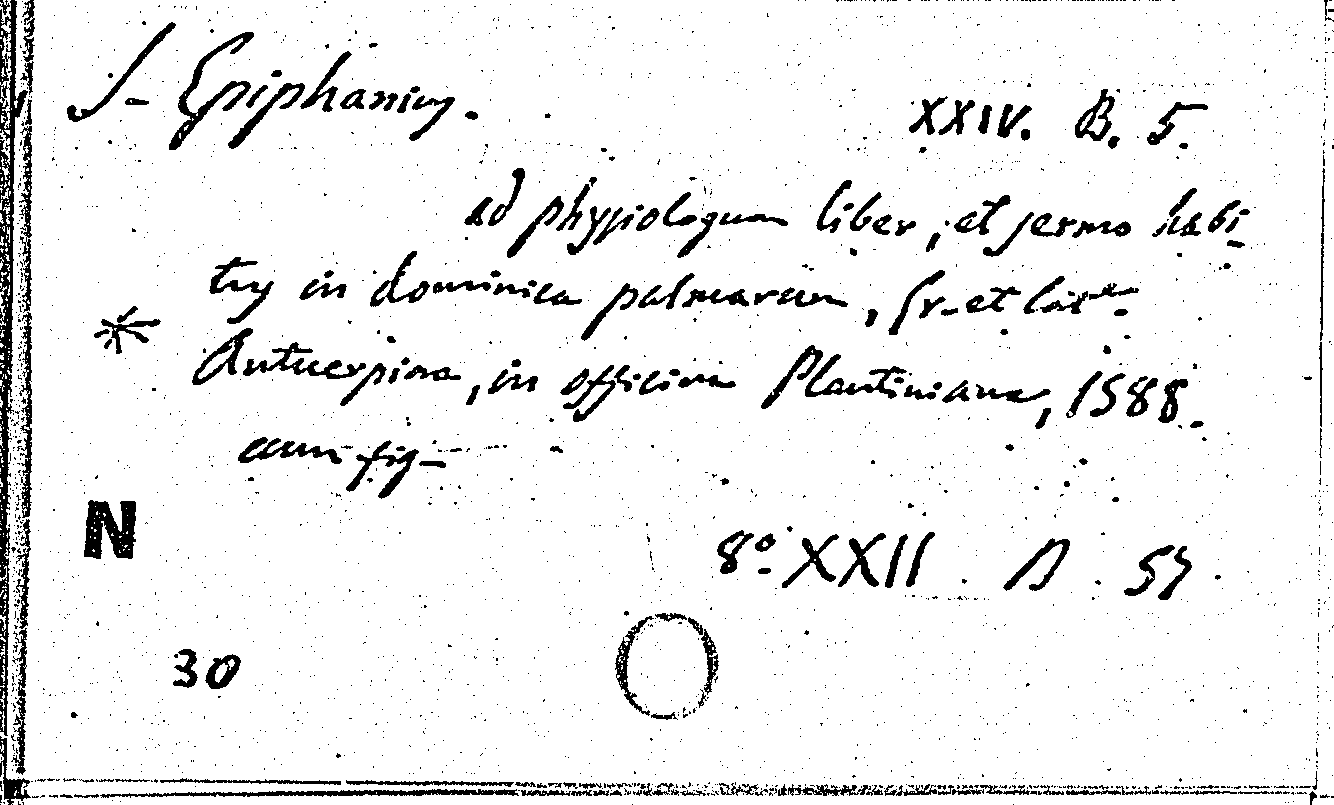 S- Epiphanius.
XXIV. B. 5.
ad physiologum liber, et sermo habi-
tus in dominica palmarum, gr- et latè.
* Antuerpiæ, in officina Plantiniana, 1588.
cum fig-
N
8º XXII . D . 57 .
30